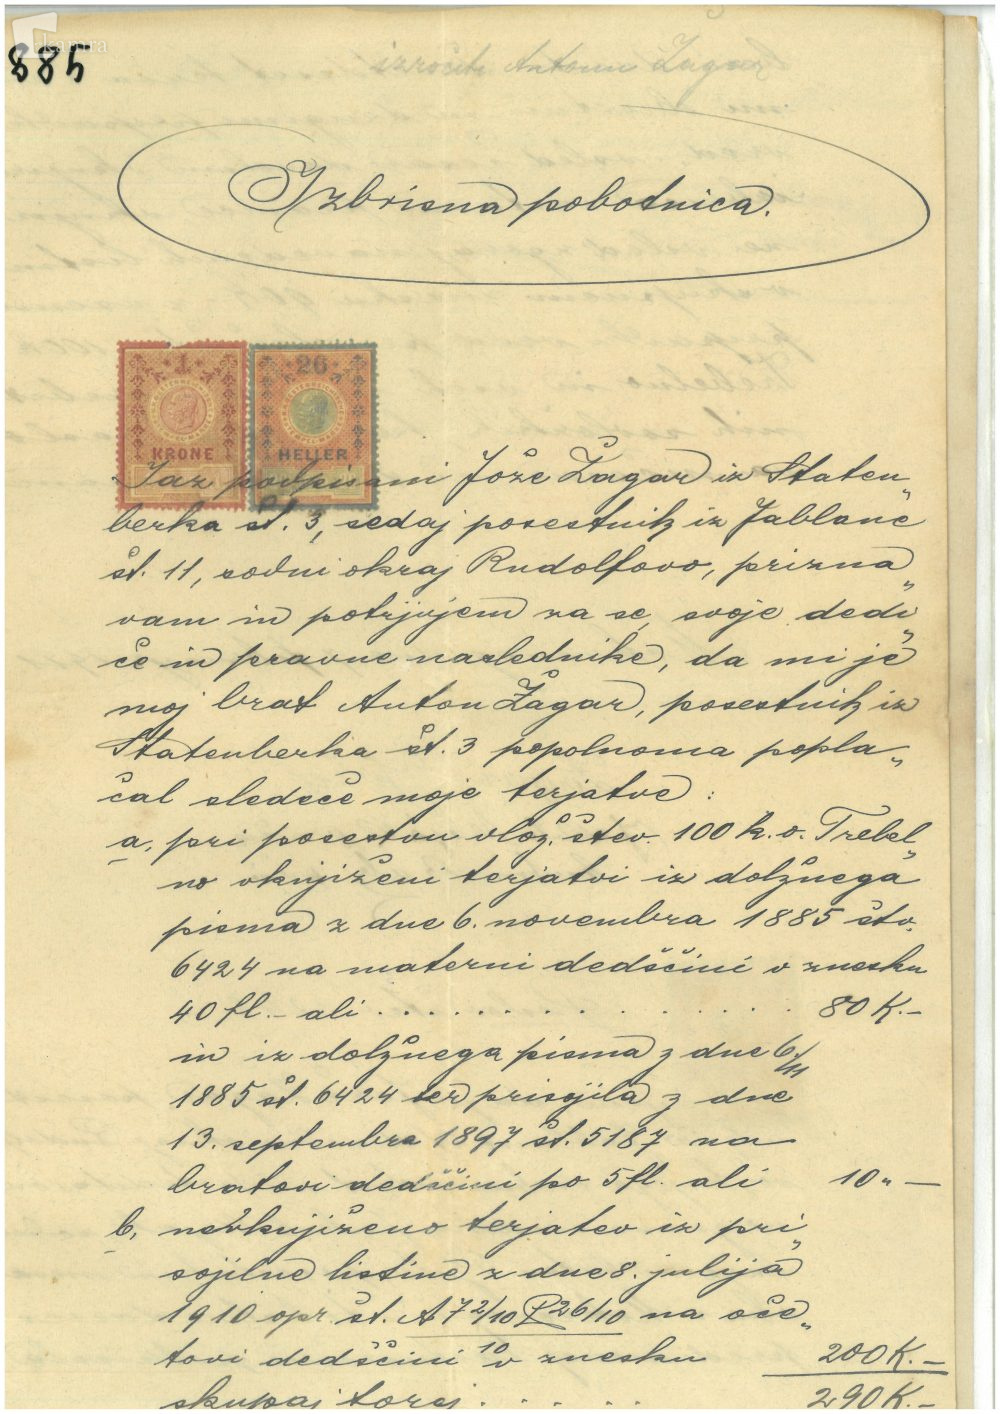 kamra
885
izroči Antonu Žagar
Izbrisna pobotnica.
1
26
KRONE
HELLER
Jaz podpisani Jože Žagar iz Staten„
berka št. 3, sedaj posestnik iz Jablane
št. 11, sodni okraj Rudolfovo, prizna„
vam in potrjujem za se, svoje dedi„
če in pravne naslednike, da mi je
moj brat Anton Žagar, posestnik iz
Statenberka št. 3 popolnoma popla„
čal sledeče moje terjatve :
a, pri posestvu vlož. štev. 100 k. o. Trebel„
no vknjiženi terjatvi iz dolžnega
pisma z dne 6. novembra 1885 štv.
6424 na materni dedščini v znesku
40 fl. – ali . . . . . . . . . . . . . . 80 K. –
in iz dolžnega pisma z dne 6./11
1885 št. 6424 ter prisojila z dne
13. septembra 1897 št. 5187 na
bratovi dedščini po 5 fl. ali 10 „ –
b, nevknjiženo terjatev iz pri„
sojilne listine z dne 8. julija
1910 opr. št. A 72/10 P 26/10 na oče„
10
tovi dedščini v znesku 200 K. –
skupaj torej . . . . . 290 K. –